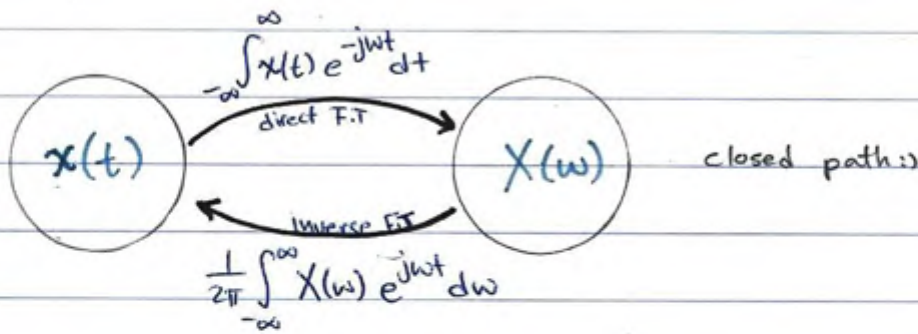 ∫_{-∞}^{∞} x(t) e^{-jwt} dt
direct F.T
x(t) X(w) closed path:)
inverse F.T
1/2π ∫_{-∞}^{∞} X(w) e^{jwt} dw